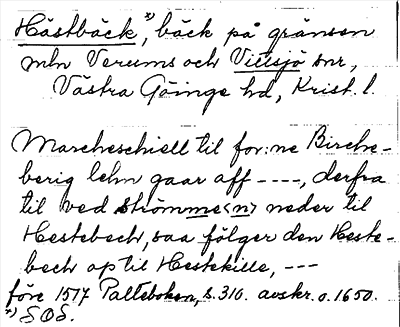 Hästbäck *), bäck på gränsen
mln Verums och Vittsjö snr,
Västra Göinge hd, Krist. l.
Marcheschiell til for:ne Birche-
berig lehn gaar aff ----, derfra
til ved strömme<n> neder til
Hestebech, saa fölger den Heste-
bech op til Hestekille, ---
före 1517 Palteboken, s. 310. avskr. o. 1650.
*) SOS.